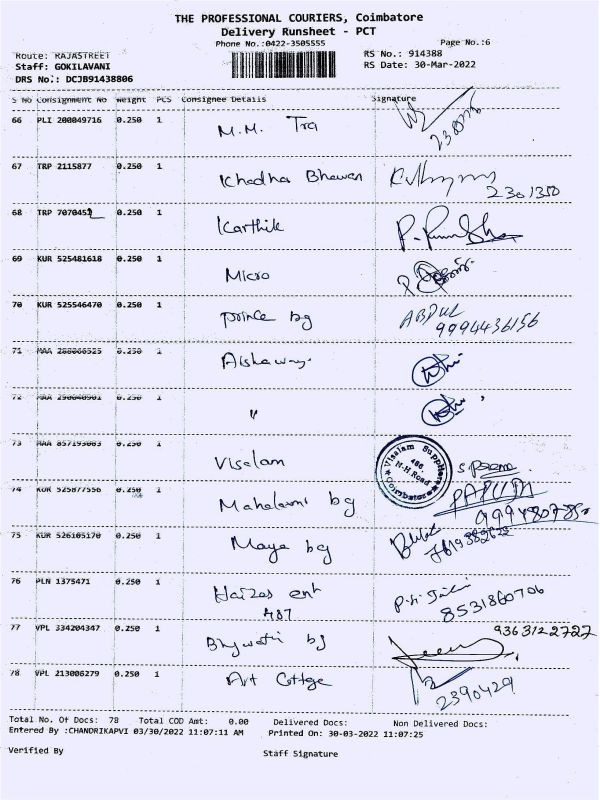 THE PROFESSIONAL COURIERS, Coimbatore
Delivery Runsheet - PCT
Phone No.:0422-3505555
Page No.:6
Route: RAJASTREET
RS No.: 914388
Staff: GOKILAVANI
RS Date: 30-Mar-2022
DRS No.: DCJB91438806
S No Consignment No Weight PCS Consignee Details Signature
66 PLI 200849716 0.250 1 M.M. Tra
67 TRP 2115877 0.250 1 Khadhar Bhawan
2301350
68 TRP 7070452 0.250 1 Karthik
69 KUR 525481618 0.250 1 Micro
70 KUR 525546470 0.250 1 prince bg ABDUL
9994436156
71 MAA 288066525 0.250 1
72 0.250 1 "
73 MAA 857193083 0.250 1 Visalam
Visalam Suppliers
H-H Road
74 KUR 525877556 0.250 1 Mahalaxmi bg
75 KUR 526105170 0.250 1 Maya bg
76 PLN 1375471 0.250 1 ent
487
8531860706
77 VPL 334204347 0.250 1 bg 9363122727
78 VPL 213006279 0.250 1 Art Cottge
2390429
Total No. Of Docs: 78 Total COD Amt: 0.00 Delivered Docs: Non Delivered Docs:
Entered By :CHANDRIKAPVI 03/30/2022 11:07:11 AM Printed On: 30-03-2022 11:07:25
Verified By Staff Signature